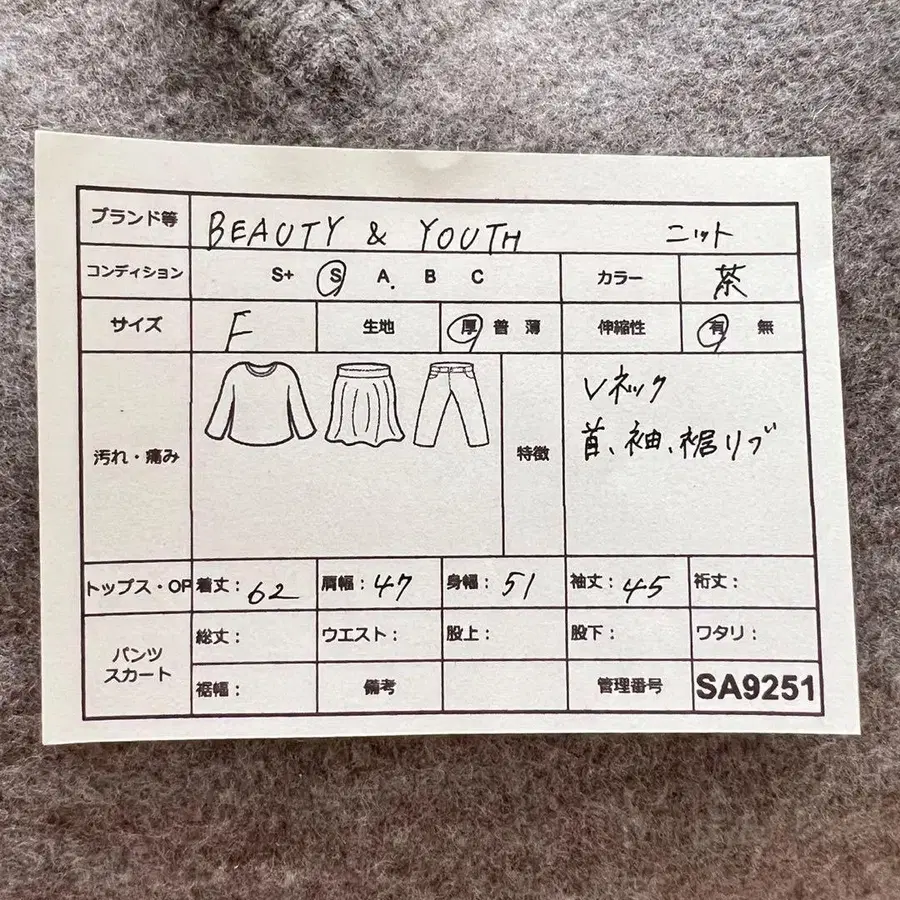 ブランド等 BEAUTY & YOUTH ニット
コンディション S+ S A. B C カラー 茶
サイズ F 生地 厚 普 薄 伸縮性 有 無
汚れ・痛み 特徴 Vネック
首、袖、裾リブ
トップス・OP 着丈: 62 肩幅: 47 身幅: 51 袖丈: 45 裄丈:
パンツ スカート 総丈: ウエスト: 股上: 股下: ワタリ:
裾幅: 備考 管理番号 SA9251